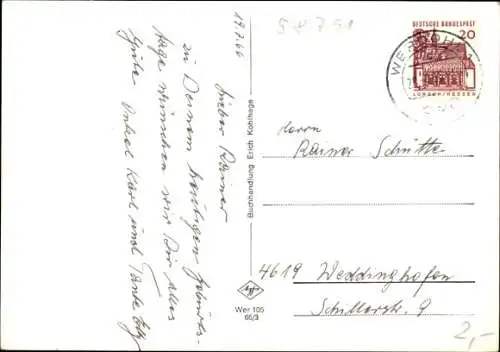 19.7.66
58751
Lieber Rainer
zu Deinem heutigen Geburts-
tage wünschen wir Dir alles
Gute. Onkel Karl und Tante
Buchhandlung Erich Kohlhage
DEUTSCHE BUNDESPOST
20
LORSCH/HESSEN
WERDOHL
Herrn
Rainer Schütte
4619 Weddinghofen
Schillerstr. 9
Agfa
Wer 105
66/3
2,-